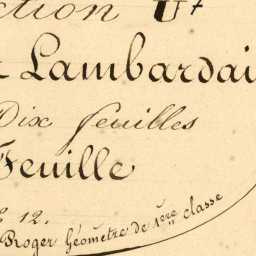 ction U⁺
Lambardai
Dix feuilles
Feuille
12.
Roger Géomètre de 1ère classe